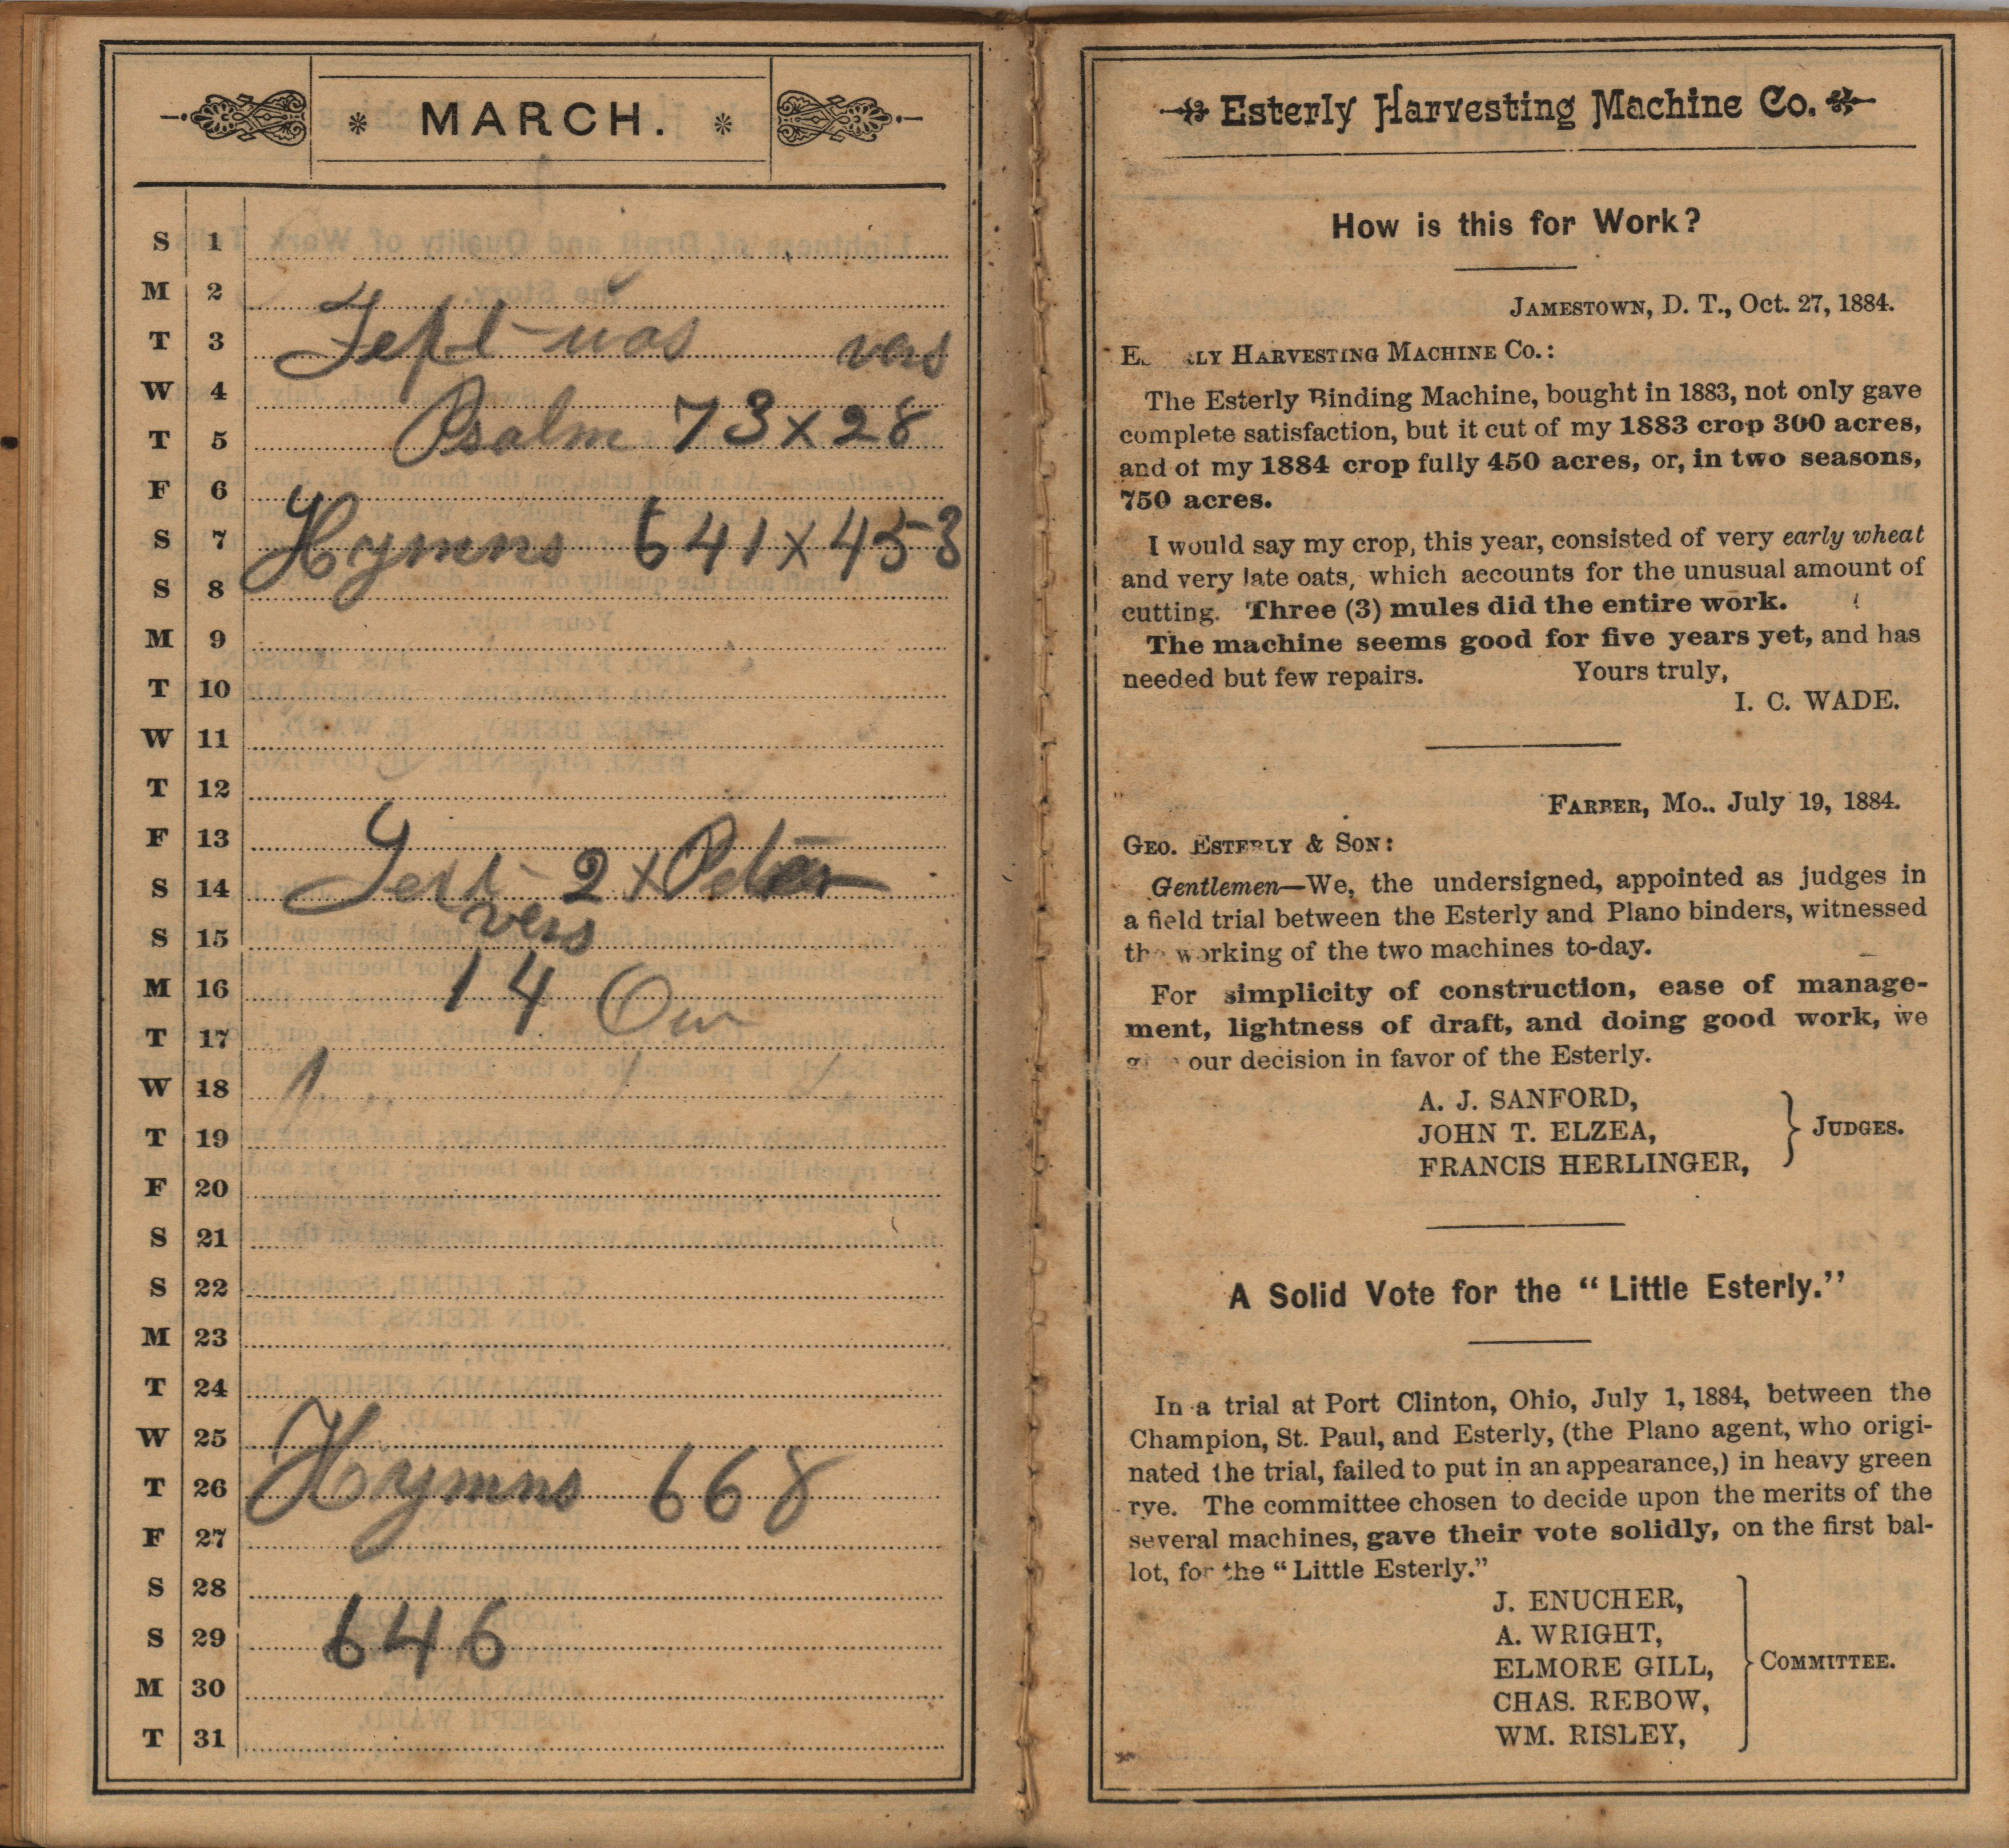 MARCH.
S 1
M 2
T 3
was vers
W 4
Psalm 73 x 28
T 5
F 6
Hymns 641 x 453
S 7
S 8
M 9
T 10
W 11
T 12
F 13
S 14
Text 2 x Peter
vers
S 15
14 Our
M 16
T 17
W 18
T 19
F 20
S 21
S 22
M 23
T 24
W 25
T 26
Hymns 668
F 27
S 28
S 29
646
M 30
T 31
Esterly Harvesting Machine Co.
How is this for Work?
JAMESTOWN, D. T., Oct. 27, 1884.
HARVESTING MACHINE CO.:
The Esterly Binding Machine, bought in 1883, not only gave
complete satisfaction, but it cut of my 1883 crop 300 acres,
and of my 1884 crop fully 450 acres, or, in two seasons,
750 acres.
I would say my crop, this year, consisted of very early wheat
and very late oats, which accounts for the unusual amount of
cutting. Three (3) mules did the entire work.
The machine seems good for five years yet, and has
needed but few repairs. Yours truly,
I. C. WADE.
FARBER, Mo., July 19, 1884.
GEO. ESTERLY & SON:
Gentlemen—We, the undersigned, appointed as judges in
a field trial between the Esterly and Plano binders, witnessed
the working of the two machines to-day.
For simplicity of construction, ease of manage-
ment, lightness of draft, and doing good work, we
our decision in favor of the Esterly.
A. J. SANFORD,
JOHN T. ELZEA,
FRANCIS HERLINGER,
JUDGES.
A Solid Vote for the "Little Esterly."
In a trial at Port Clinton, Ohio, July 1, 1884, between the
Champion, St. Paul, and Esterly, (the Plano agent, who origi-
nated the trial, failed to put in an appearance,) in heavy green
rye. The committee chosen to decide upon the merits of the
several machines, gave their vote solidly, on the first bal-
lot, for the "Little Esterly."
J. ENUCHER,
A. WRIGHT,
ELMORE GILL,
CHAS. REBOW,
WM. RISLEY,
COMMITTEE.